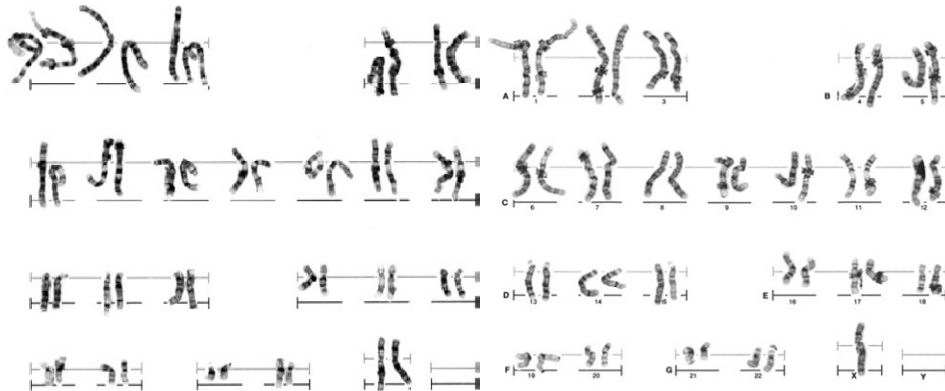 A 1 3 B 4 5
C 6 7 8 9 10 11 12
D 13 14 15 E 16 17 18
F 19 20 G 21 22 X Y